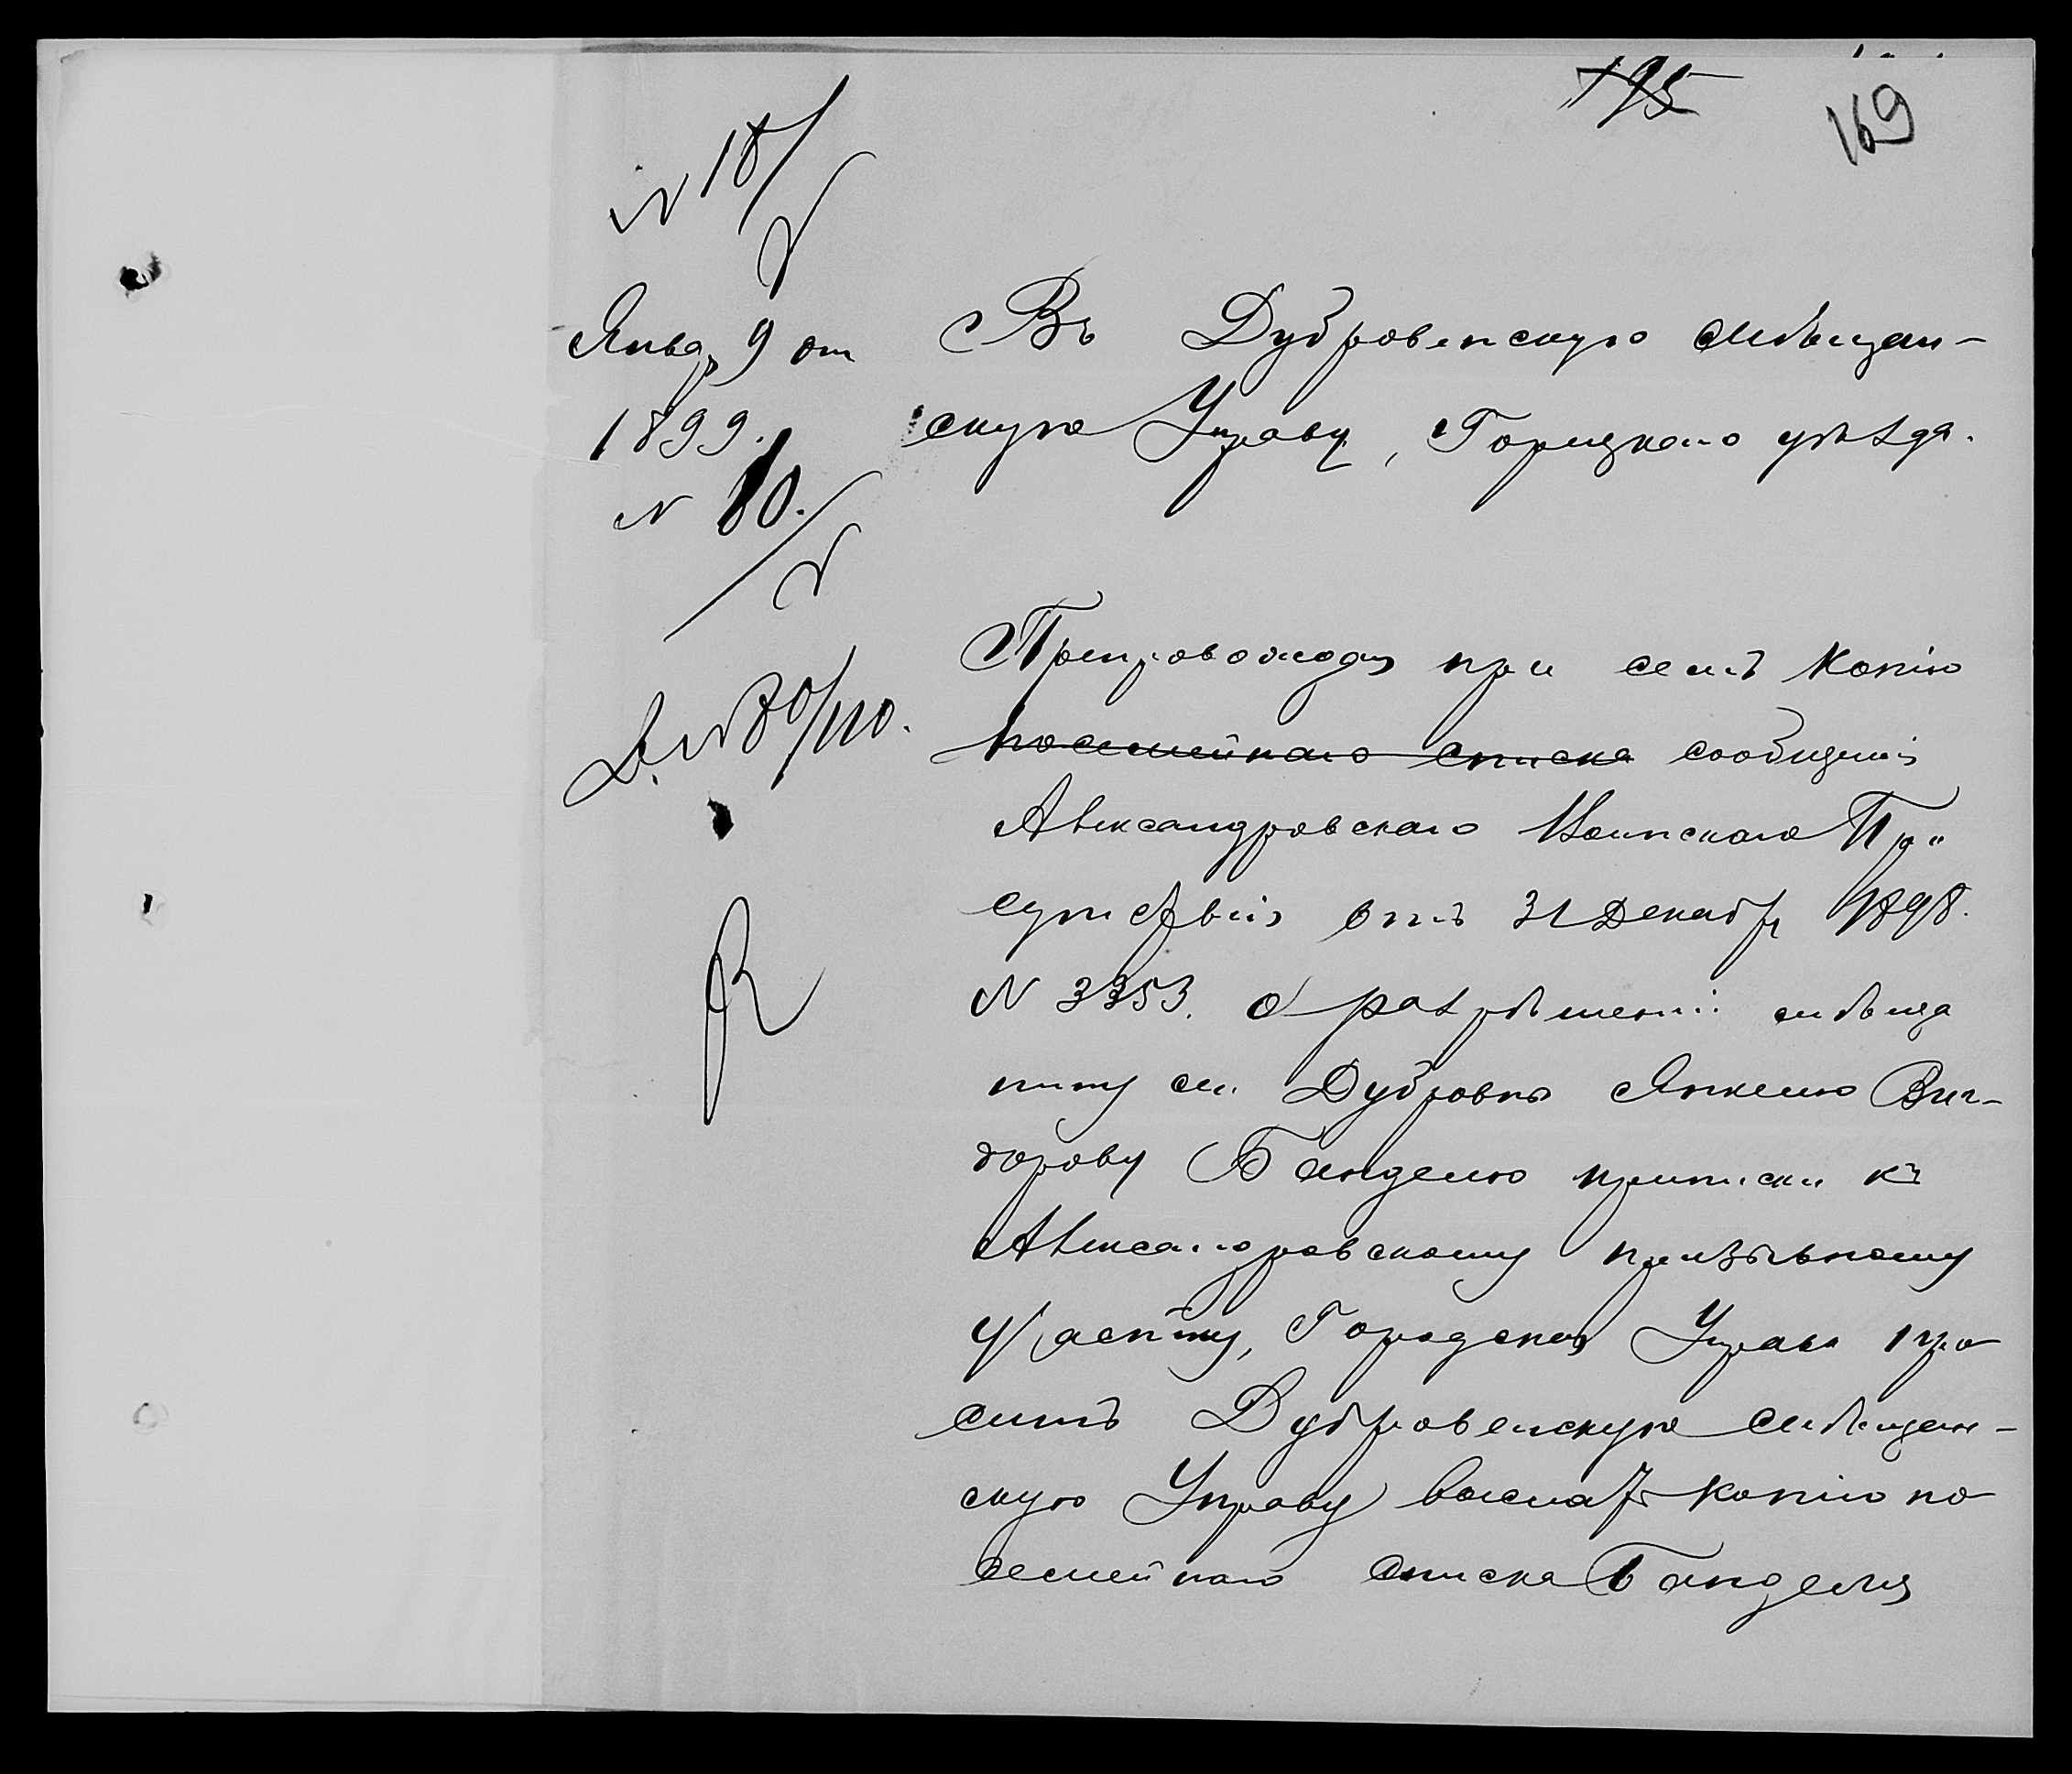 195
169
N 18/
Январ 9 дня
1899.
N 80.
Д. N 80/110.
Въ Дубровенскую мѣщан-
скую Управу, Горецкаго уѣзда.
Препровождая при семъ копію
посемейнаго списка сообщенія
Александровскаго Воинскаго При
сутствія отъ 31 Декабр 1898.
N 3353. о разрѣшеніи мѣща
нину м. Дубровны Янкелю Виг-
дорову Банделю приписки къ
Александровскому призывному
участку, Городская Управа про
ситъ Дубровенскую мѣщан-
скую Управу выслать копію по
семейнаго списка Банделя